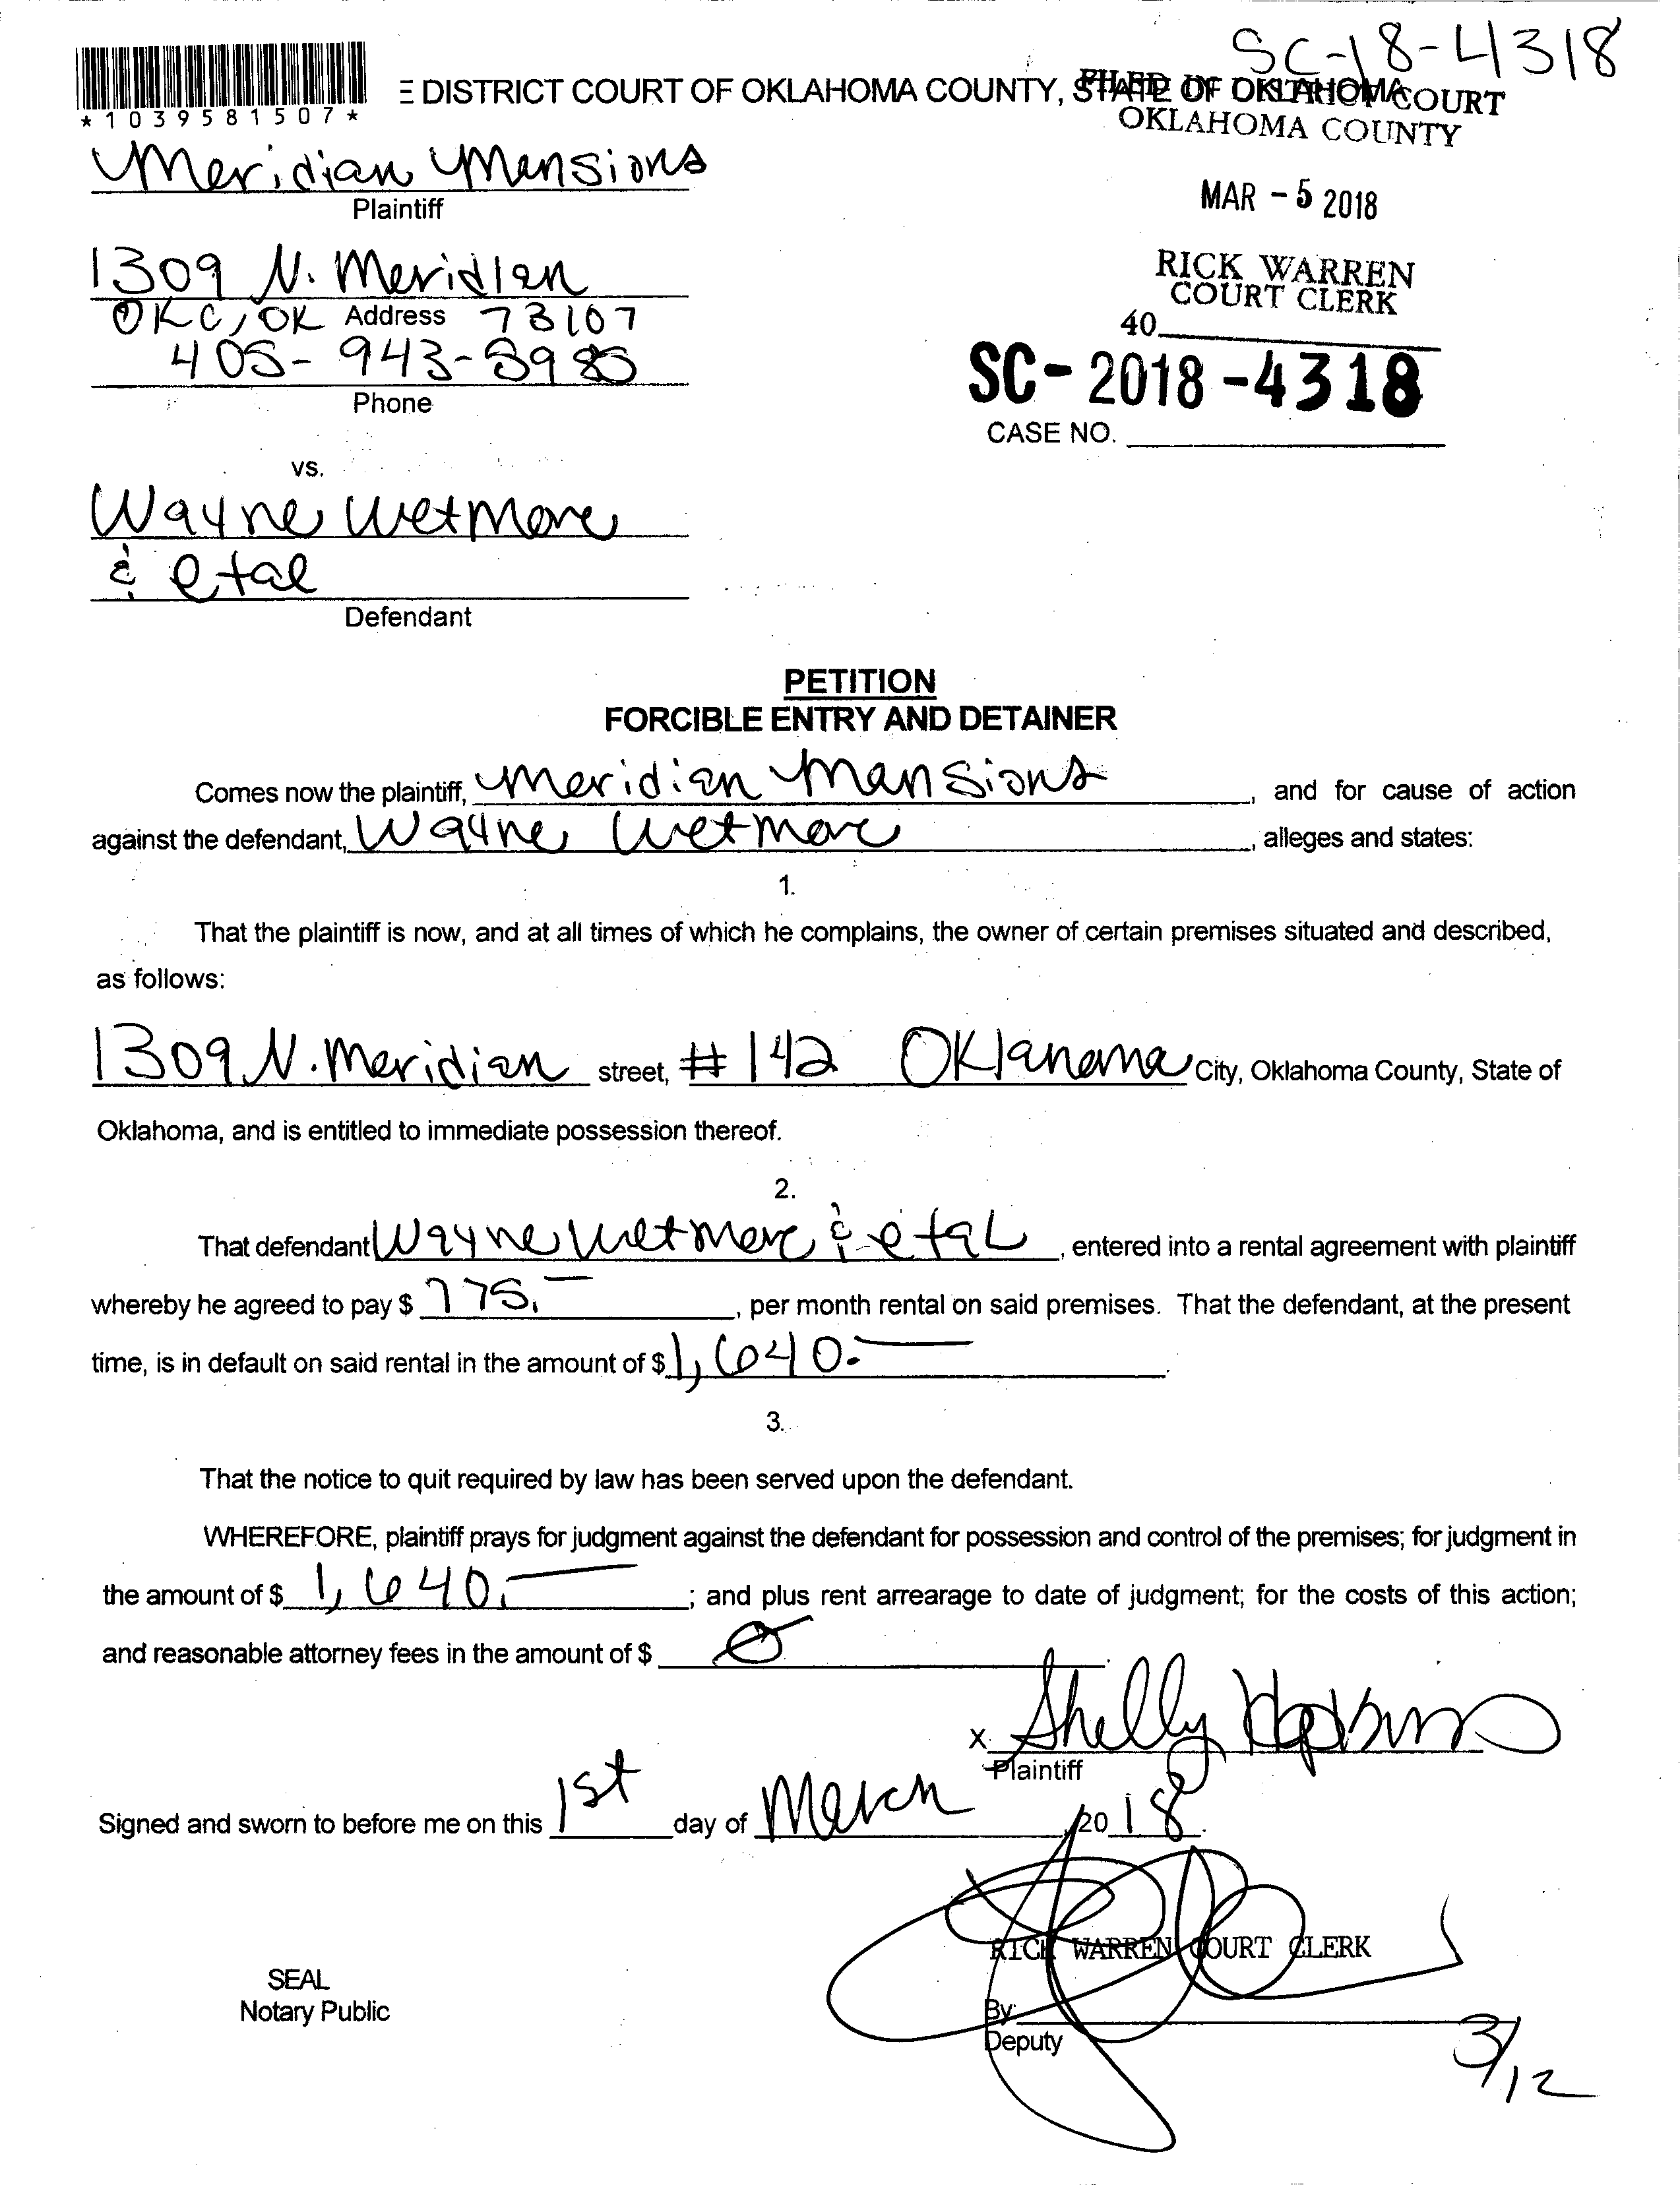 SC-18-4318
*1039581507*
E DISTRICT COURT OF OKLAHOMA COUNTY, STATE OF OKLAHOMA
FILED IN DISTRICT COURT
OKLAHOMA COUNTY
Meridian Mansions
Plaintiff
MAR - 5 2018
1309 N. Meridian
OKC, OK Address 73107
RICK WARREN
COURT CLERK
40
405-943-
Phone
SC- 2018 -4318
CASE NO.
vs.
Wayne Wetmore
& etal
Defendant
PETITION
FORCIBLE ENTRY AND DETAINER
Comes now the plaintiff, Meridian Mansions, and for cause of action
against the defendant, Wayne Wetmore, alleges and states:
1.
That the plaintiff is now, and at all times of which he complains, the owner of certain premises situated and described,
as follows:
1309 N. Meridian street, # 142 Oklahoma City, Oklahoma County, State of
Oklahoma, and is entitled to immediate possession thereof.
2.
That defendant Wayne Wetmore & etal, entered into a rental agreement with plaintiff
whereby he agreed to pay $ 775.—, per month rental on said premises. That the defendant, at the present
time, is in default on said rental in the amount of $ 1,640.—.
3.
That the notice to quit required by law has been served upon the defendant.
WHEREFORE, plaintiff prays for judgment against the defendant for possession and control of the premises; for judgment in
the amount of $ 1,640.—; and plus rent arrearage to date of judgment; for the costs of this action;
and reasonable attorney fees in the amount of $ 0.
X Shelly Hopkins
Plaintiff
Signed and sworn to before me on this 1st day of March, 2018.
RICK WARREN COURT CLERK
SEAL
Notary Public
By:
Deputy
3/12